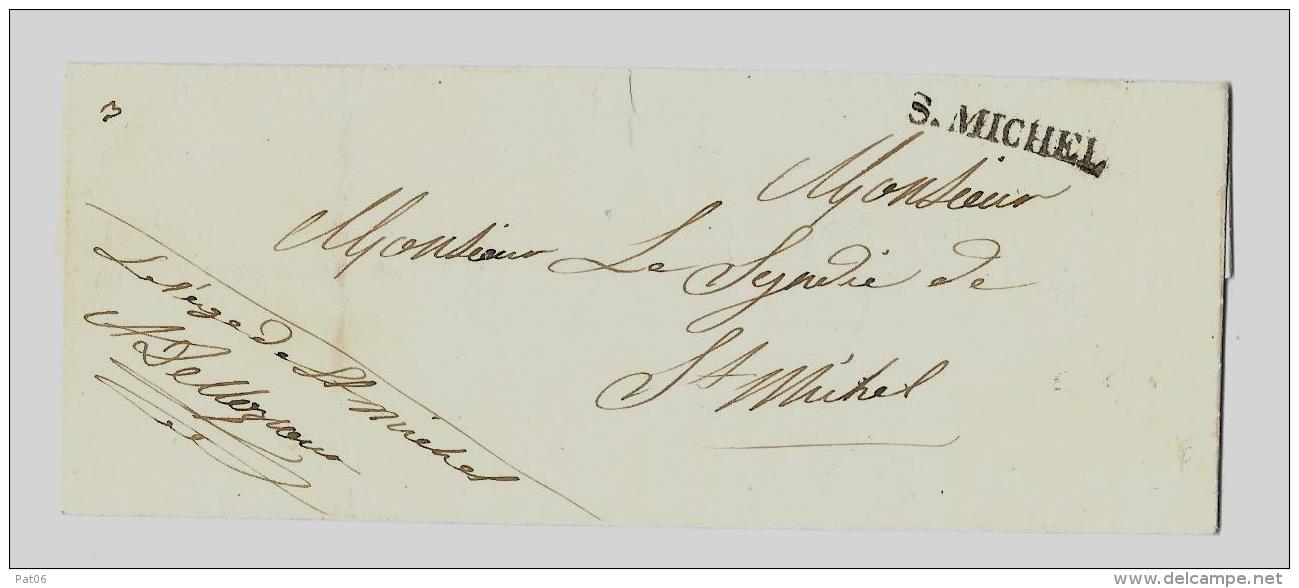 3
S. MICHEL
Monsieur
Monsieur Le Syndic de
St Michel
Le Juge de St Michel
Pat06
delcampe.net